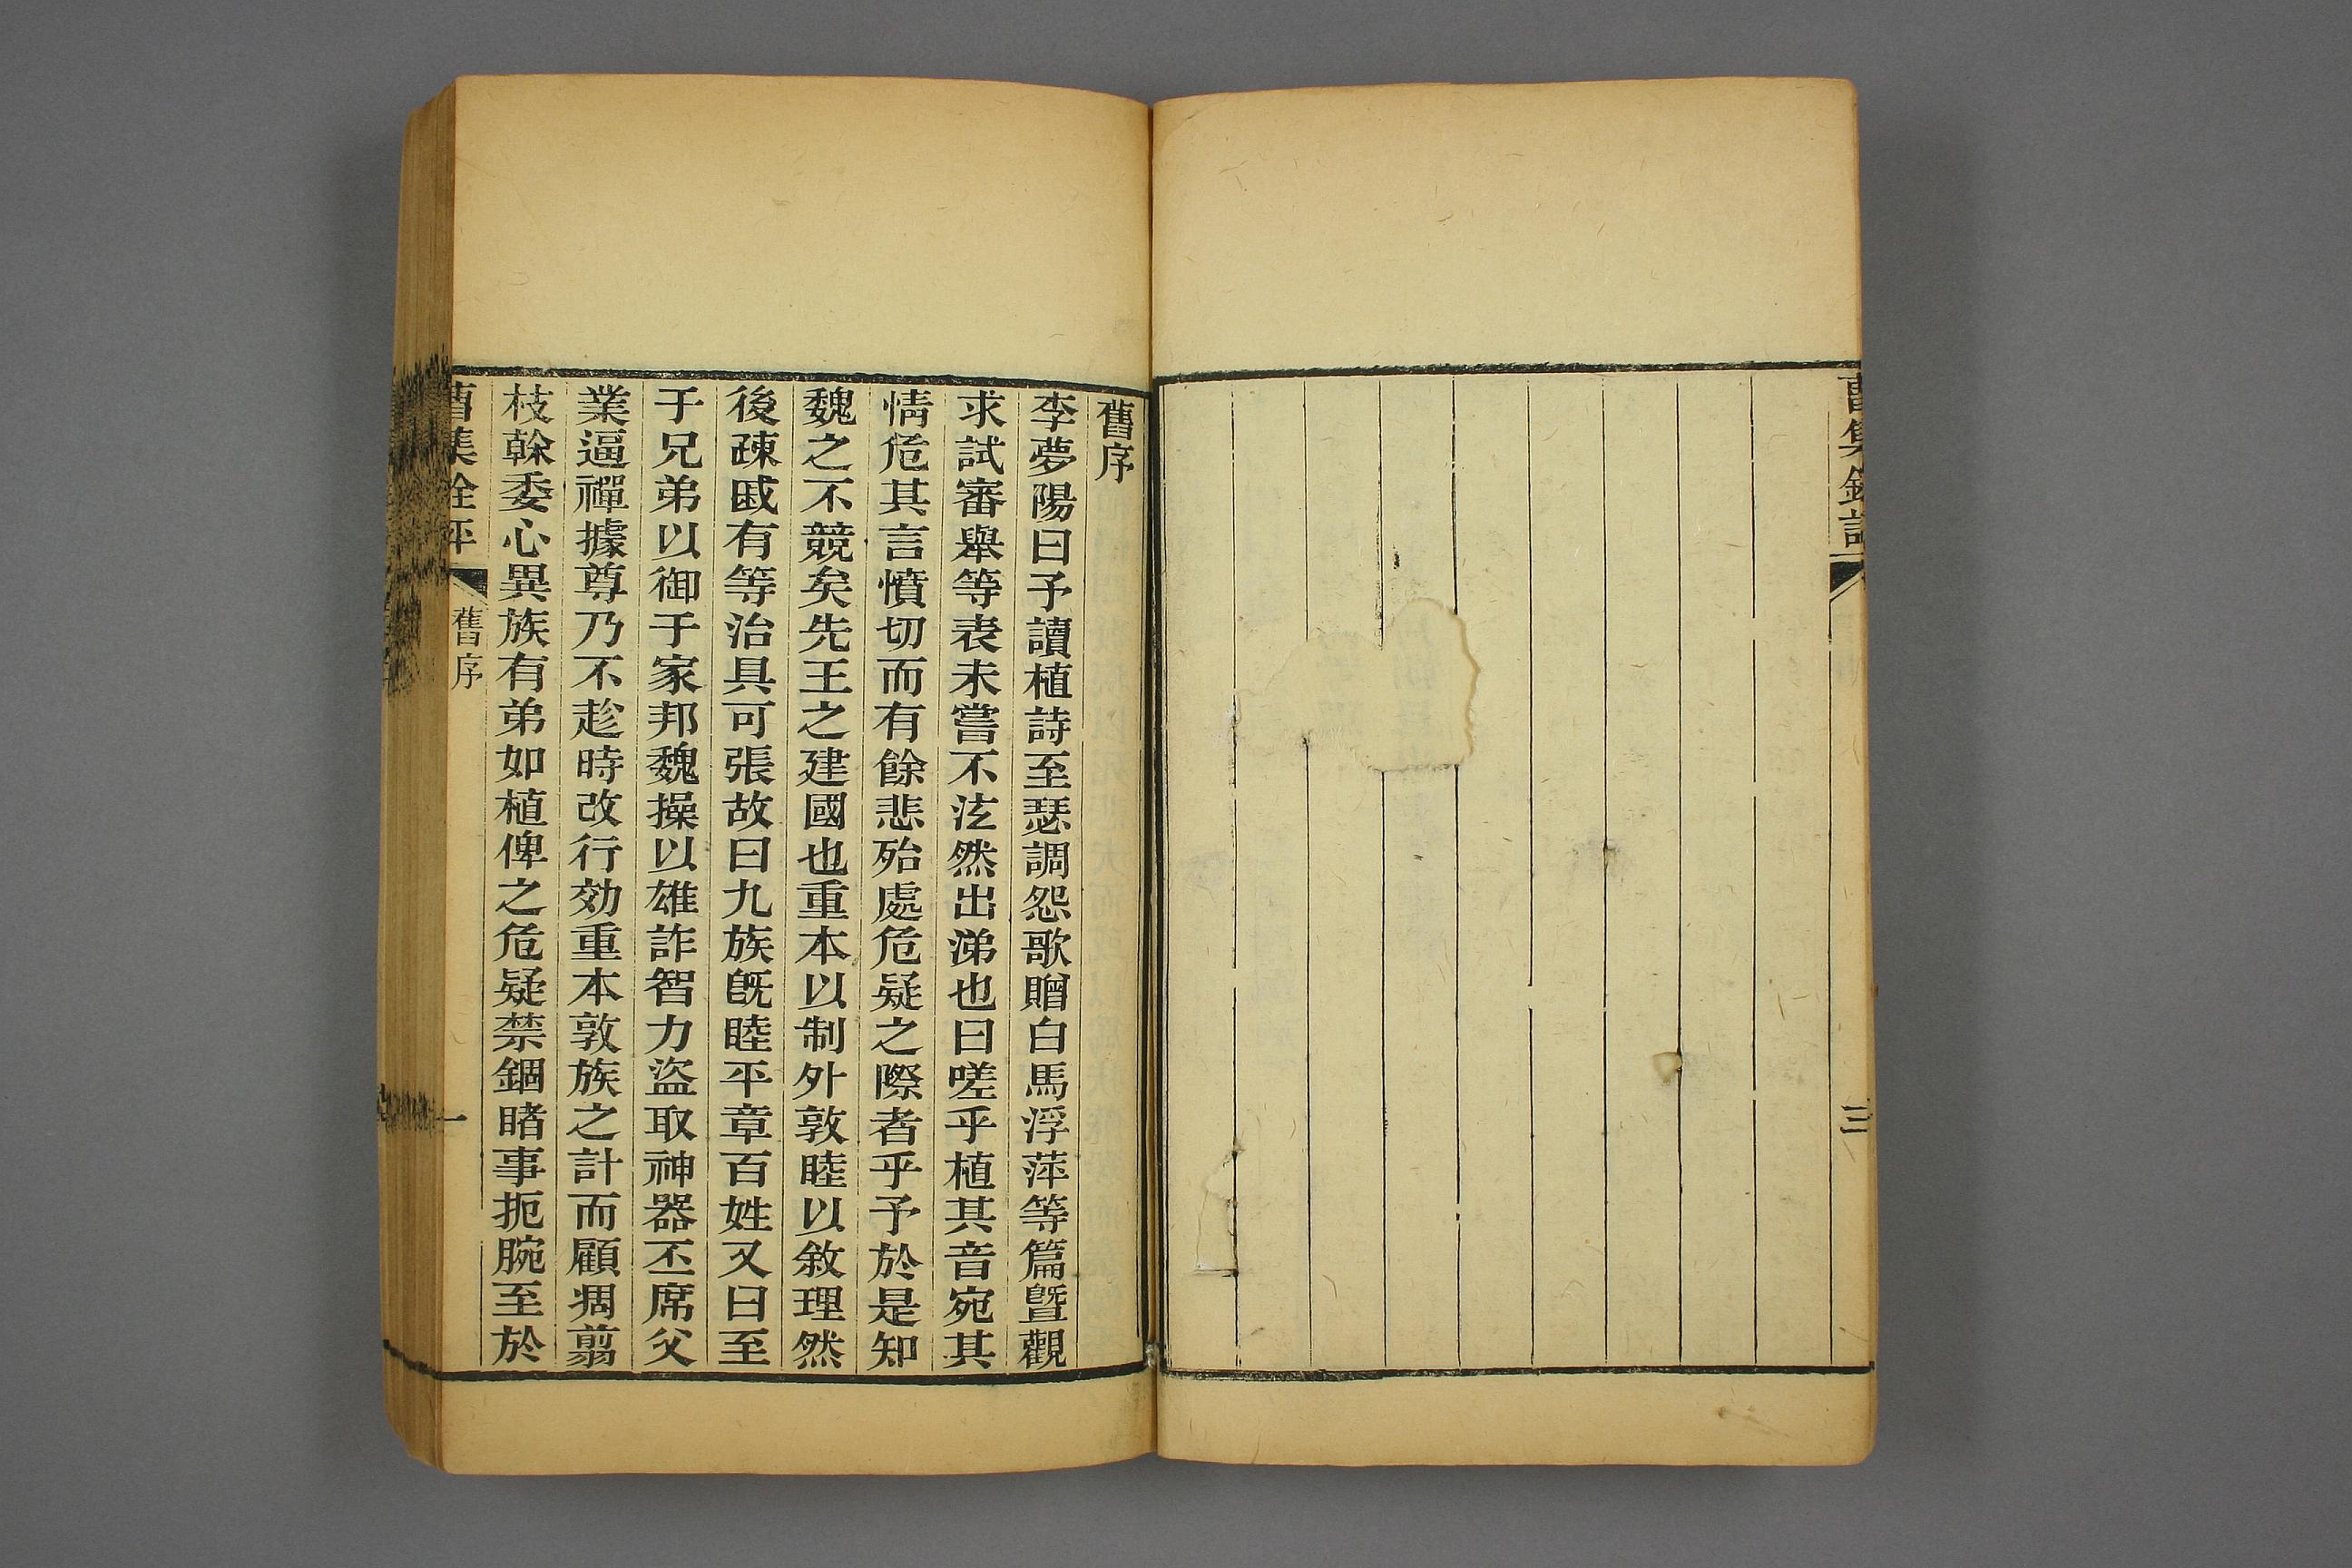 曹集銓評
三
舊序
李夢陽曰予讀植詩至瑟調怨歌贈白馬浮萍等篇曁觀
求試審舉等表未嘗不泫然出涕也曰嗟乎植其音宛其
情危其言憤切而有餘悲殆處危疑之際者乎予於是知
魏之不競矣先王之建國也重本以制外敦睦以敘理然
後疎戚有等治具可張故曰九族旣睦平章百姓又曰至
于兄弟以御于家邦魏操以雄詐智力盜取神器丕席父
業逼禪據尊乃不趁時改行效重本敦族之計而顧凋翦
枝幹委心異族有弟如植俾之危疑禁錮睹事扼腕至於
曹集銓評
舊序
一